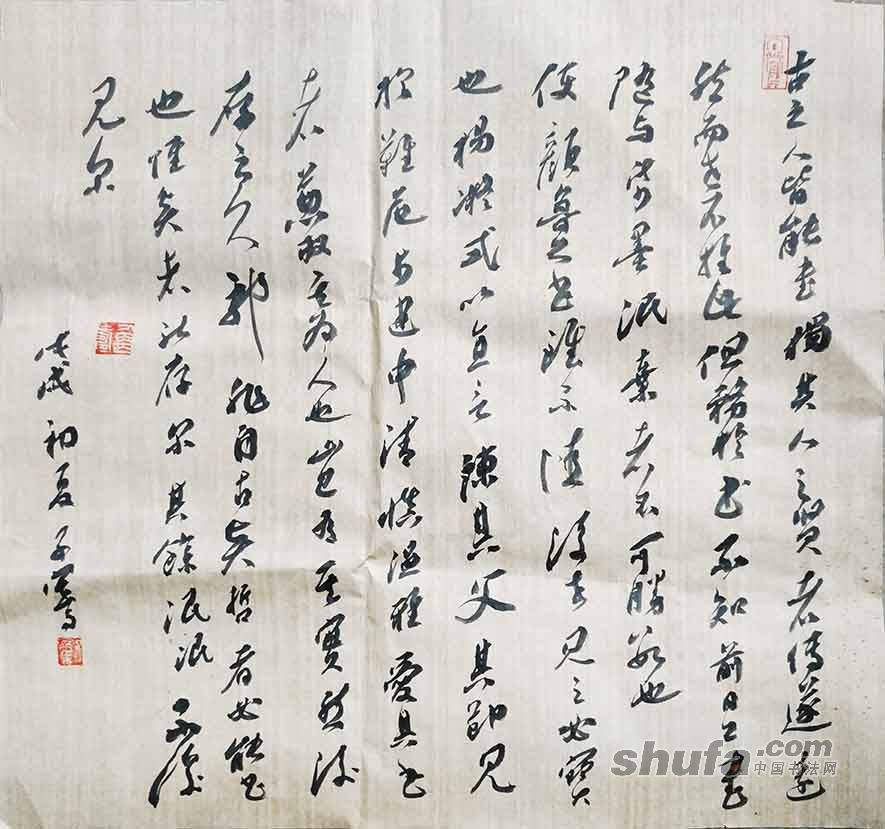 古之人皆能書獨其人之賢者傳遂遠
然而世不推此但務於書不知前日工書
随与帋墨泯棄者不可勝數也
使顏魯公書雖不佳後世見之必寶
也楊凝式以直言諫其父其節見
於難危李建中清慎溫雅愛其書
者兼取其為人也豈有其實然後
存之久耶非自古賢哲者必能書
也惟賢者能存尔其餘泯泯不復
見尔
戊戌初夏子
shufa.com
中国书法网